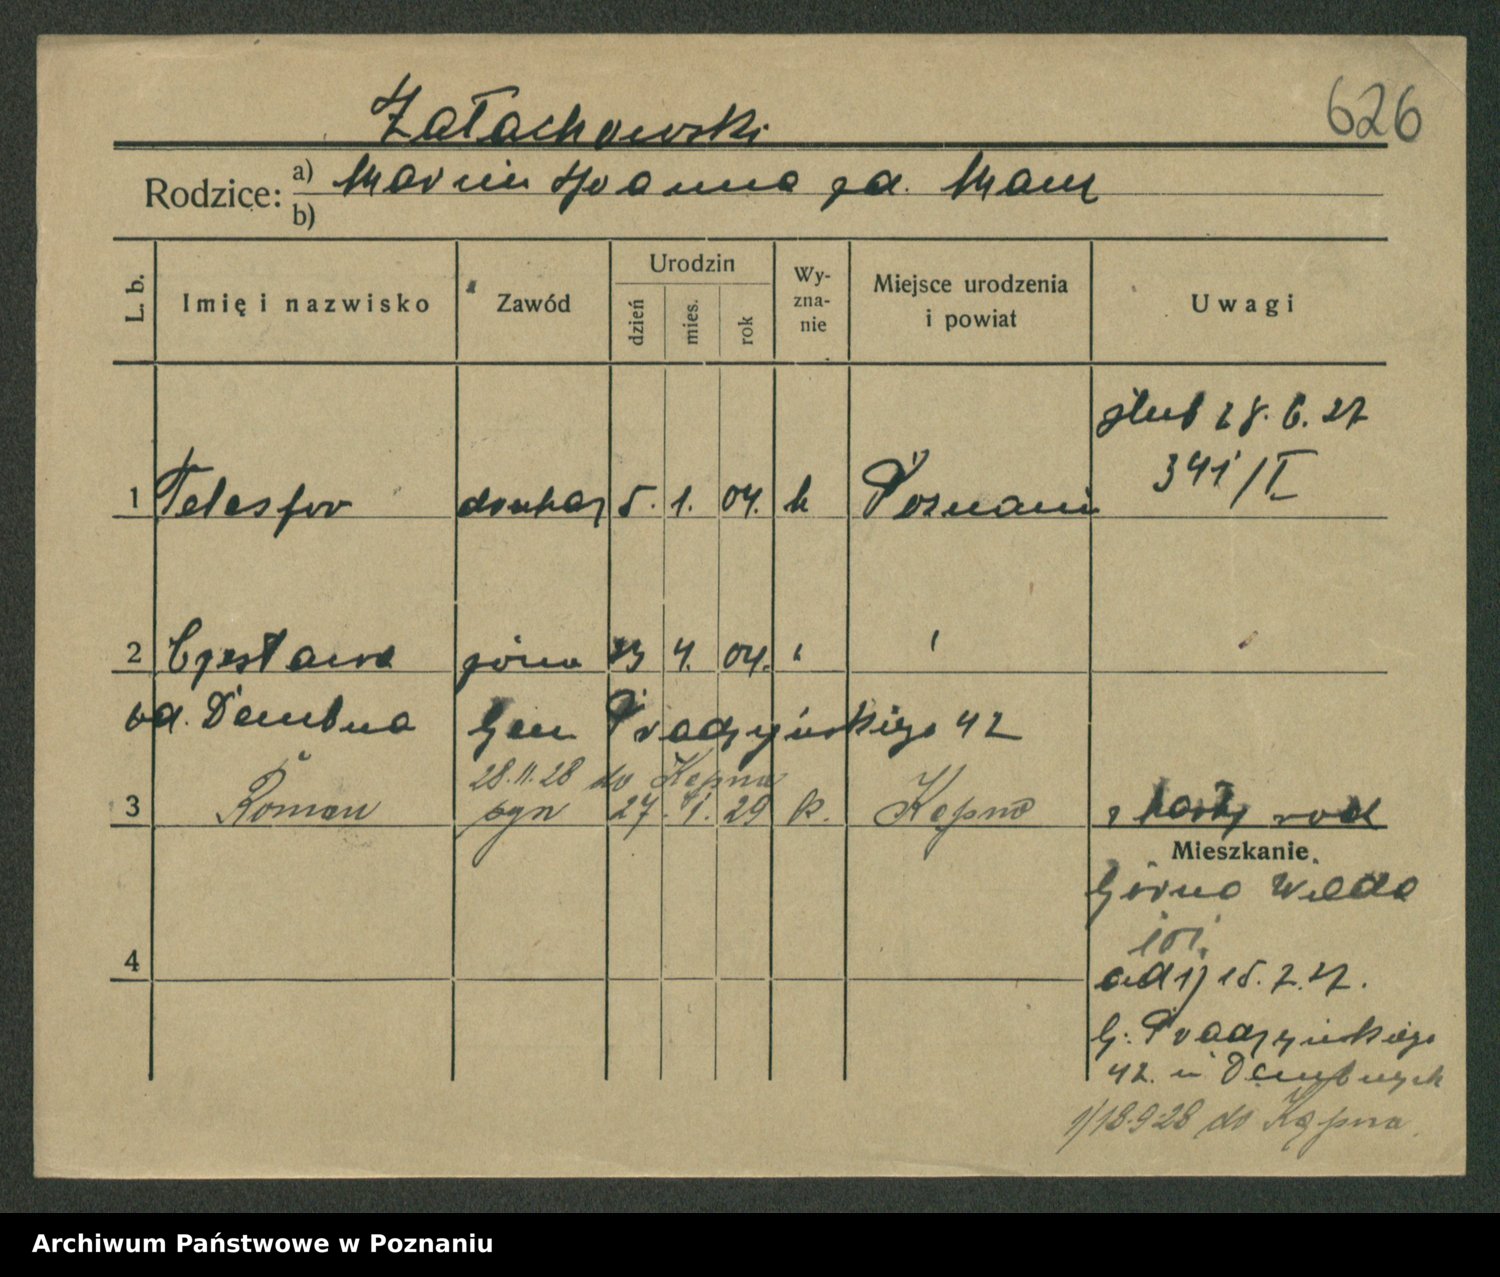 626
Załachowski
Rodzice: a) Marcin Joanna zd. Man
b)
L. b. Imię i nazwisko Zawód Urodzin dzień mies. rok Wy-zna-nie Miejsce urodzenia i powiat Uwagi
ślub 28. 6. 27
341/I
1 Telesfor drukarz 5. 1. 04. k Poznań
2 Czesława żona 23 4. 04. " "
od. Dembna Gen Prądzyńskiego 42
28.11.28 do Kępna
3 Roman syn 27. 1. 29 k. Kępno z karty rod
Mieszkanie
Górna Wilda
101.
od 1) 15. 7. 27.
G. Prądzyńskiego
42. u Dembnych
4
1/18.9.28 do Kępna.
Archiwum Państwowe w Poznaniu